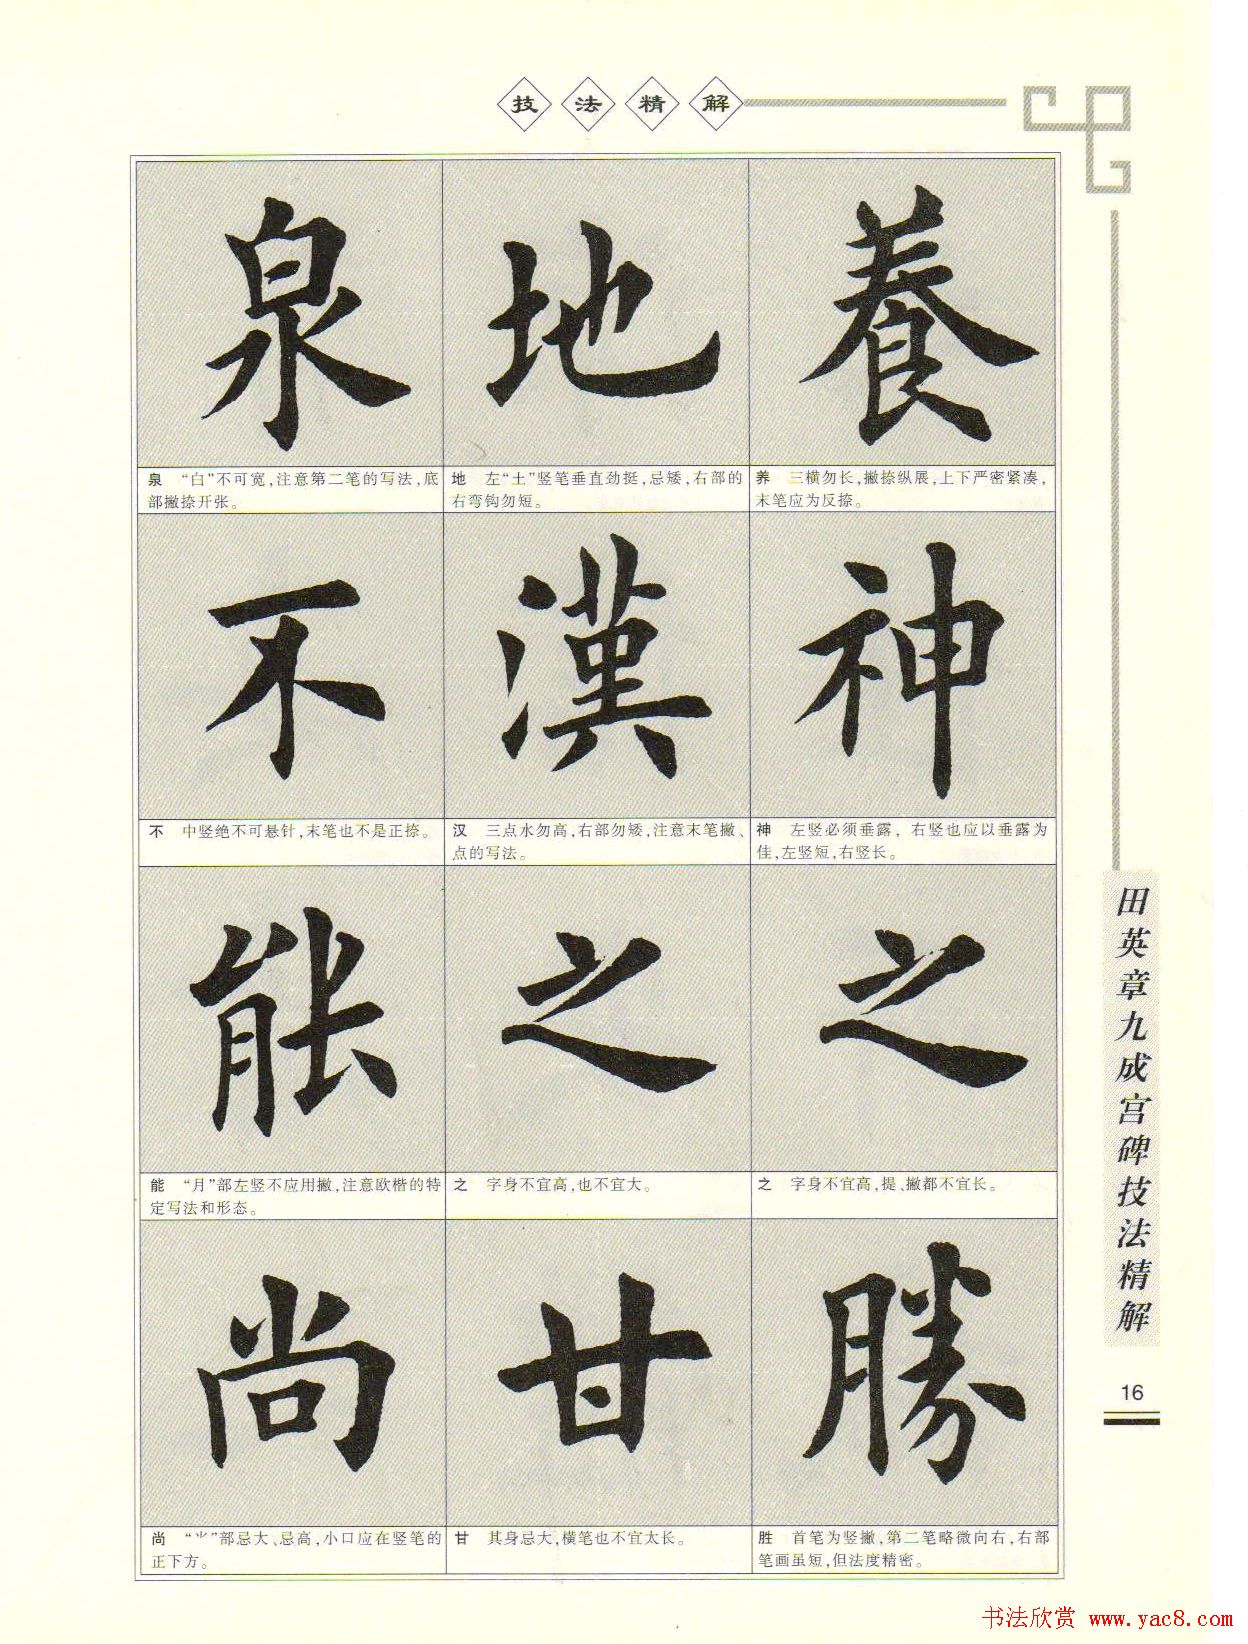 技法精解
泉 地 養
泉 “白”不可宽，注意第二笔的写法，底
部撇捺开张。
地 左“土”竖笔垂直劲挺，忌矮，右部的
右弯钩勿短。
养 三横勿长，撇捺纵展，上下严密紧凑，
末笔应为反捺。
不 漢 神
不 中竖绝不可悬针，末笔也不是正捺。
汉 三点水勿高，右部勿矮，注意末笔撇、
点的写法。
神 左竖必须垂露，右竖也应以垂露为
佳，左竖短，右竖长。
能 之 之
能 “月”部左竖不应用撇，注意欧楷的特
定写法和形态。
之 字身不宜高，也不宜大。
之 字身不宜高，提、撇都不宜长。
尚 甘 勝
尚 “⺌”部忌大、忌高，小口应在竖笔的
正下方。
甘 其身忌大，横笔也不宜太长。
胜 首笔为竖撇，第二笔略微向右，右部
笔画虽短，但法度精密。
田英章九成宫碑技法精解
16
书法欣赏 www.yac8.com